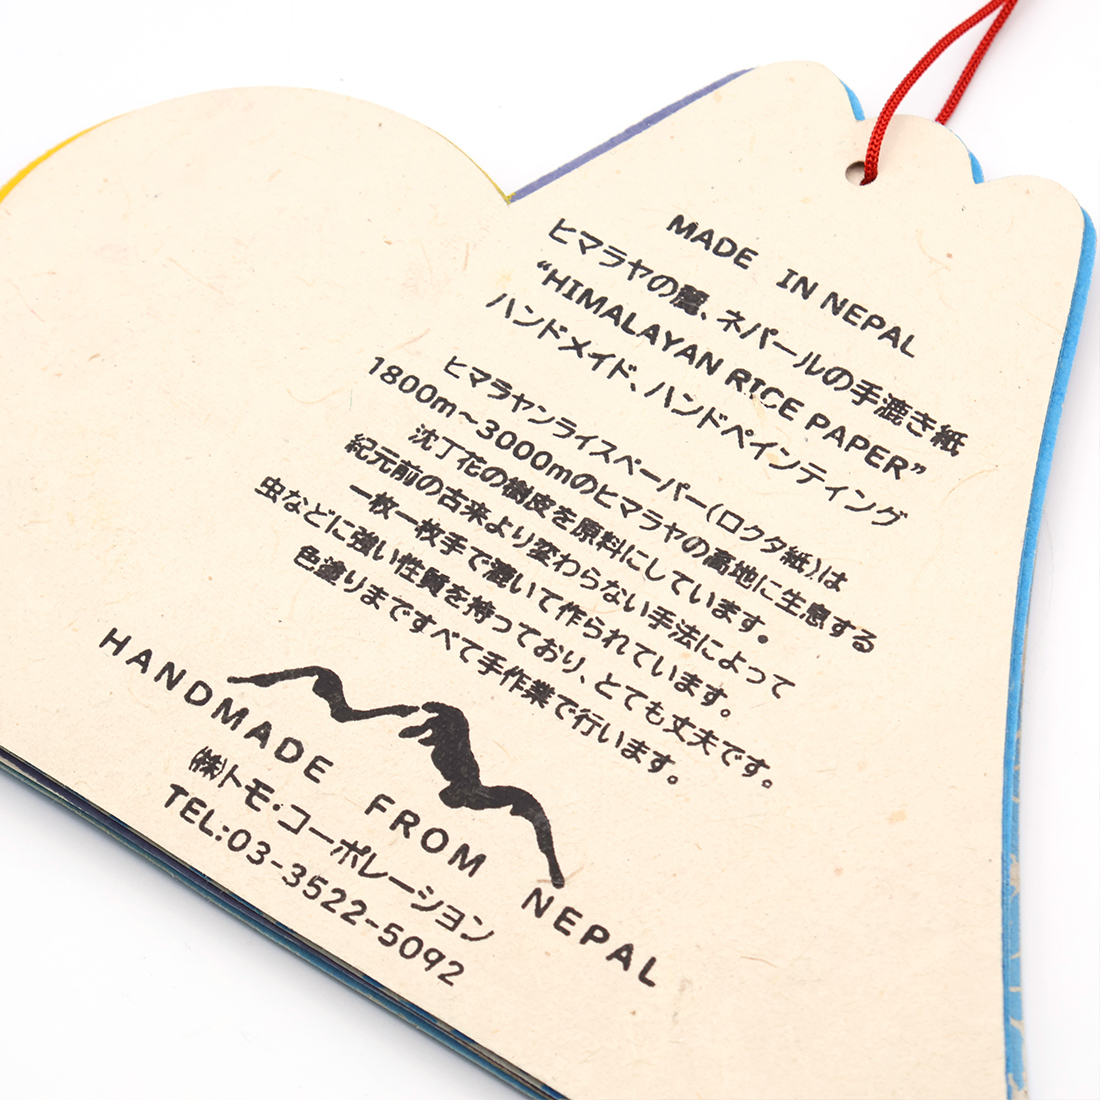 MADE IN NEPAL
ヒマラヤの麓、ネパールの手漉き紙
“HIMALAYAN RICE PAPER”
ハンドメイド、ハンドペインティング
ヒマラヤンライスペーパー(ロクタ紙)は
1800m～3000mのヒマラヤの高地に生息する
沈丁花の樹皮を原料にしています。
紀元前の古来より変わらない手法によって
一枚一枚手で漉いて作られています。
虫などに強い性質を持っており、とても丈夫です。
色塗りまですべて手作業で行います。
HANDMADE FROM NEPAL
㈱トモ・コーポレーション
TEL:03-3522-5092